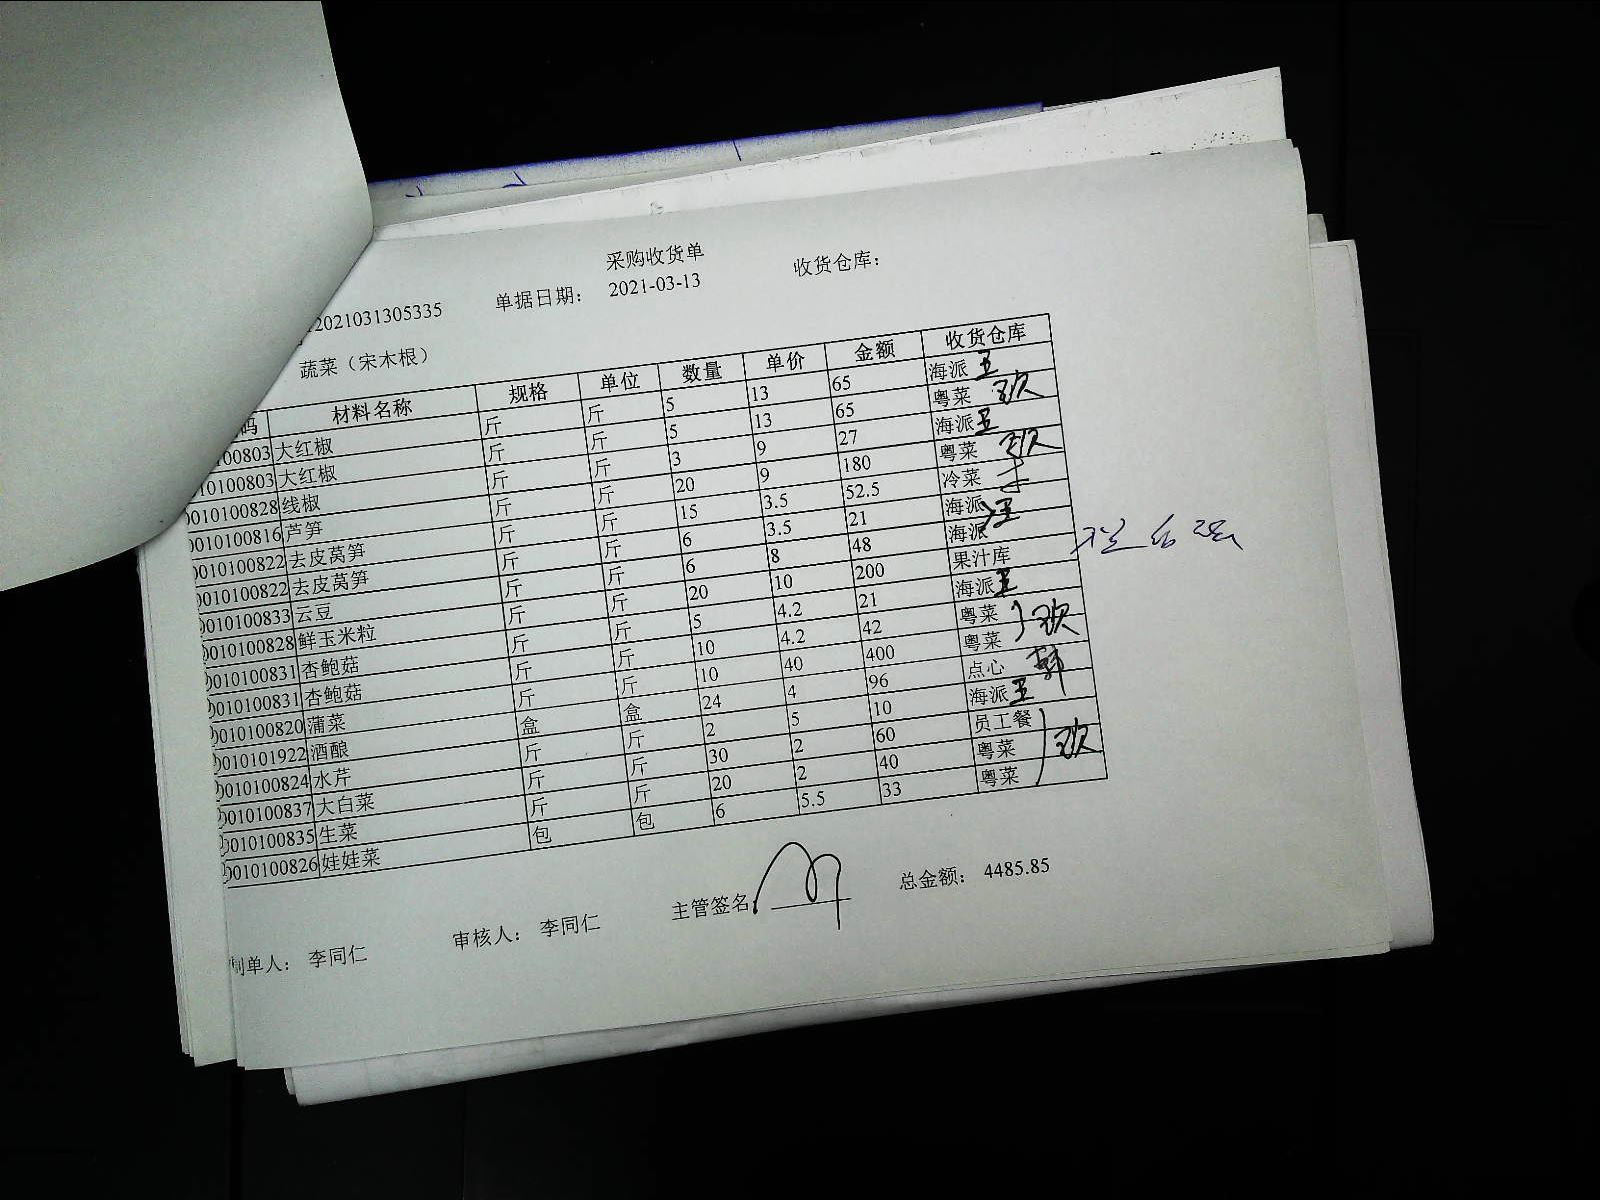 采购收货单
2021031305335 单据日期： 2021-03-13 收货仓库：
蔬菜（宋木根）
码 材料名称 规格 单位 数量 单价 金额 收货仓库
00803 大红椒 斤 斤 5 13 65 海派 王
10100803 大红椒 斤 斤 5 13 65 粤菜
010100828 线椒 斤 斤 3 9 27 海派 王
0010100816 芦笋 斤 斤 20 9 180 粤菜
0010100822 去皮莴笋 斤 斤 15 3.5 52.5 冷菜
0010100822 去皮莴笋 斤 斤 6 3.5 21 海派 王
0010100833 云豆 斤 斤 6 8 48 海派
0010100828 鲜玉米粒 斤 斤 20 10 200 果汁库
0010100831 杏鲍菇 斤 斤 5 4.2 21 海派 王
0010100831 杏鲍菇 斤 斤 10 4.2 42 粤菜
0010100820 蒲菜 斤 斤 10 40 400 粤菜
0010101922 酒酿 盒 盒 24 4 96 点心 韩
0010100824 水芹 斤 斤 2 5 10 海派 王
0010100837 大白菜 斤 斤 30 2 60 员工餐
0010100835 生菜 斤 斤 20 2 40 粤菜
0010100826 娃娃菜 包 包 6 5.5 33 粤菜
制单人： 李同仁 审核人： 李同仁 主管签名 总金额： 4485.85